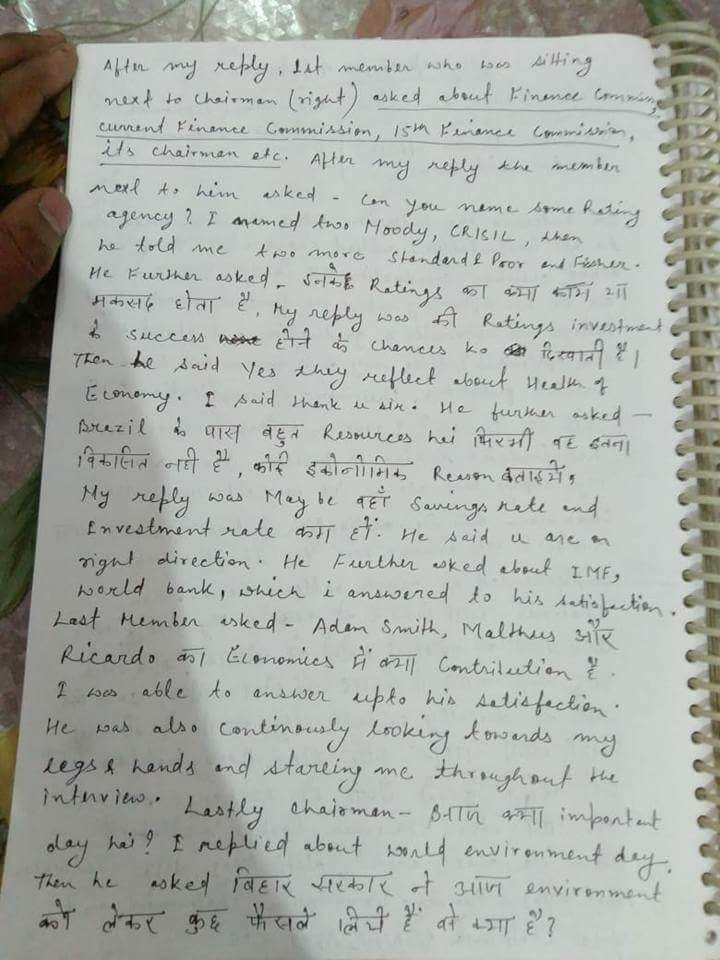 After my reply, 1st member who was sitting
next to Chairman (right) asked about Finance Commision,
current Finance Commission, 15th Finance Commission,
its chairman etc. After my reply the member
next to him asked - Can you name some Rating
agency? I named two Moody, CRISIL, then
he told me two more Standard & Poor and Fisher.
He Further asked - इनके Ratings का क्या काम या
मकसद होता है, My reply was की Ratings investment
के success होने के chances ko दिखाती है।
Then he said Yes they reflect about Health of
Economy. I said thank u sir. He further asked -
Brezil के पास बहुत Resources hai फिरभी वह इतना
विकसित नहीं है, कोई इकोनोमिक Reason बताइये,
My reply was May be वहाँ Savings rate and
Investment rate कम हो. He said u are on
right direction. He Further asked about IMF,
World bank, which i answered to his satisfection.
Last Member asked - Adam Smith, Malthus और
Ricardo का Economics में क्या Contribution है.
I was able to answer upto his satisfection.
He was also continously looking towards my
legs & hands and stareing me throughout the
interview. Lastly Chairman - आज क्या importent
day hai? I replied about world environment day.
Then he asked बिहार सरकार ने आज environment
को लेकर कुछ फैसले लिये हैं वो क्या है?